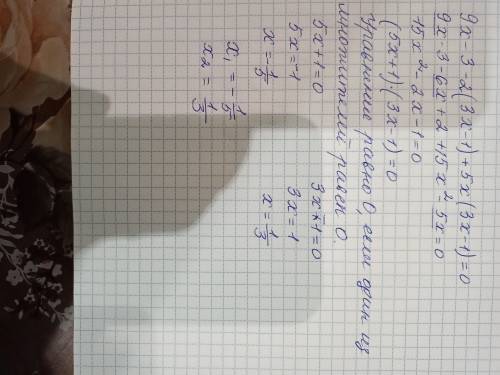 9x-3-2(3x-1)+5x(3x-1)=0
9x-3-6x+2+15x²-5x=0
15x²-2x-1=0
(5x+1)·(3x-1)=0
Уравнение равно 0, если один из
множителей равен 0.
5x+1=0 3x-1=0
5x=-1 3x=1
x=-1/5 x=1/3
x₁=-1/5
x₂=1/3